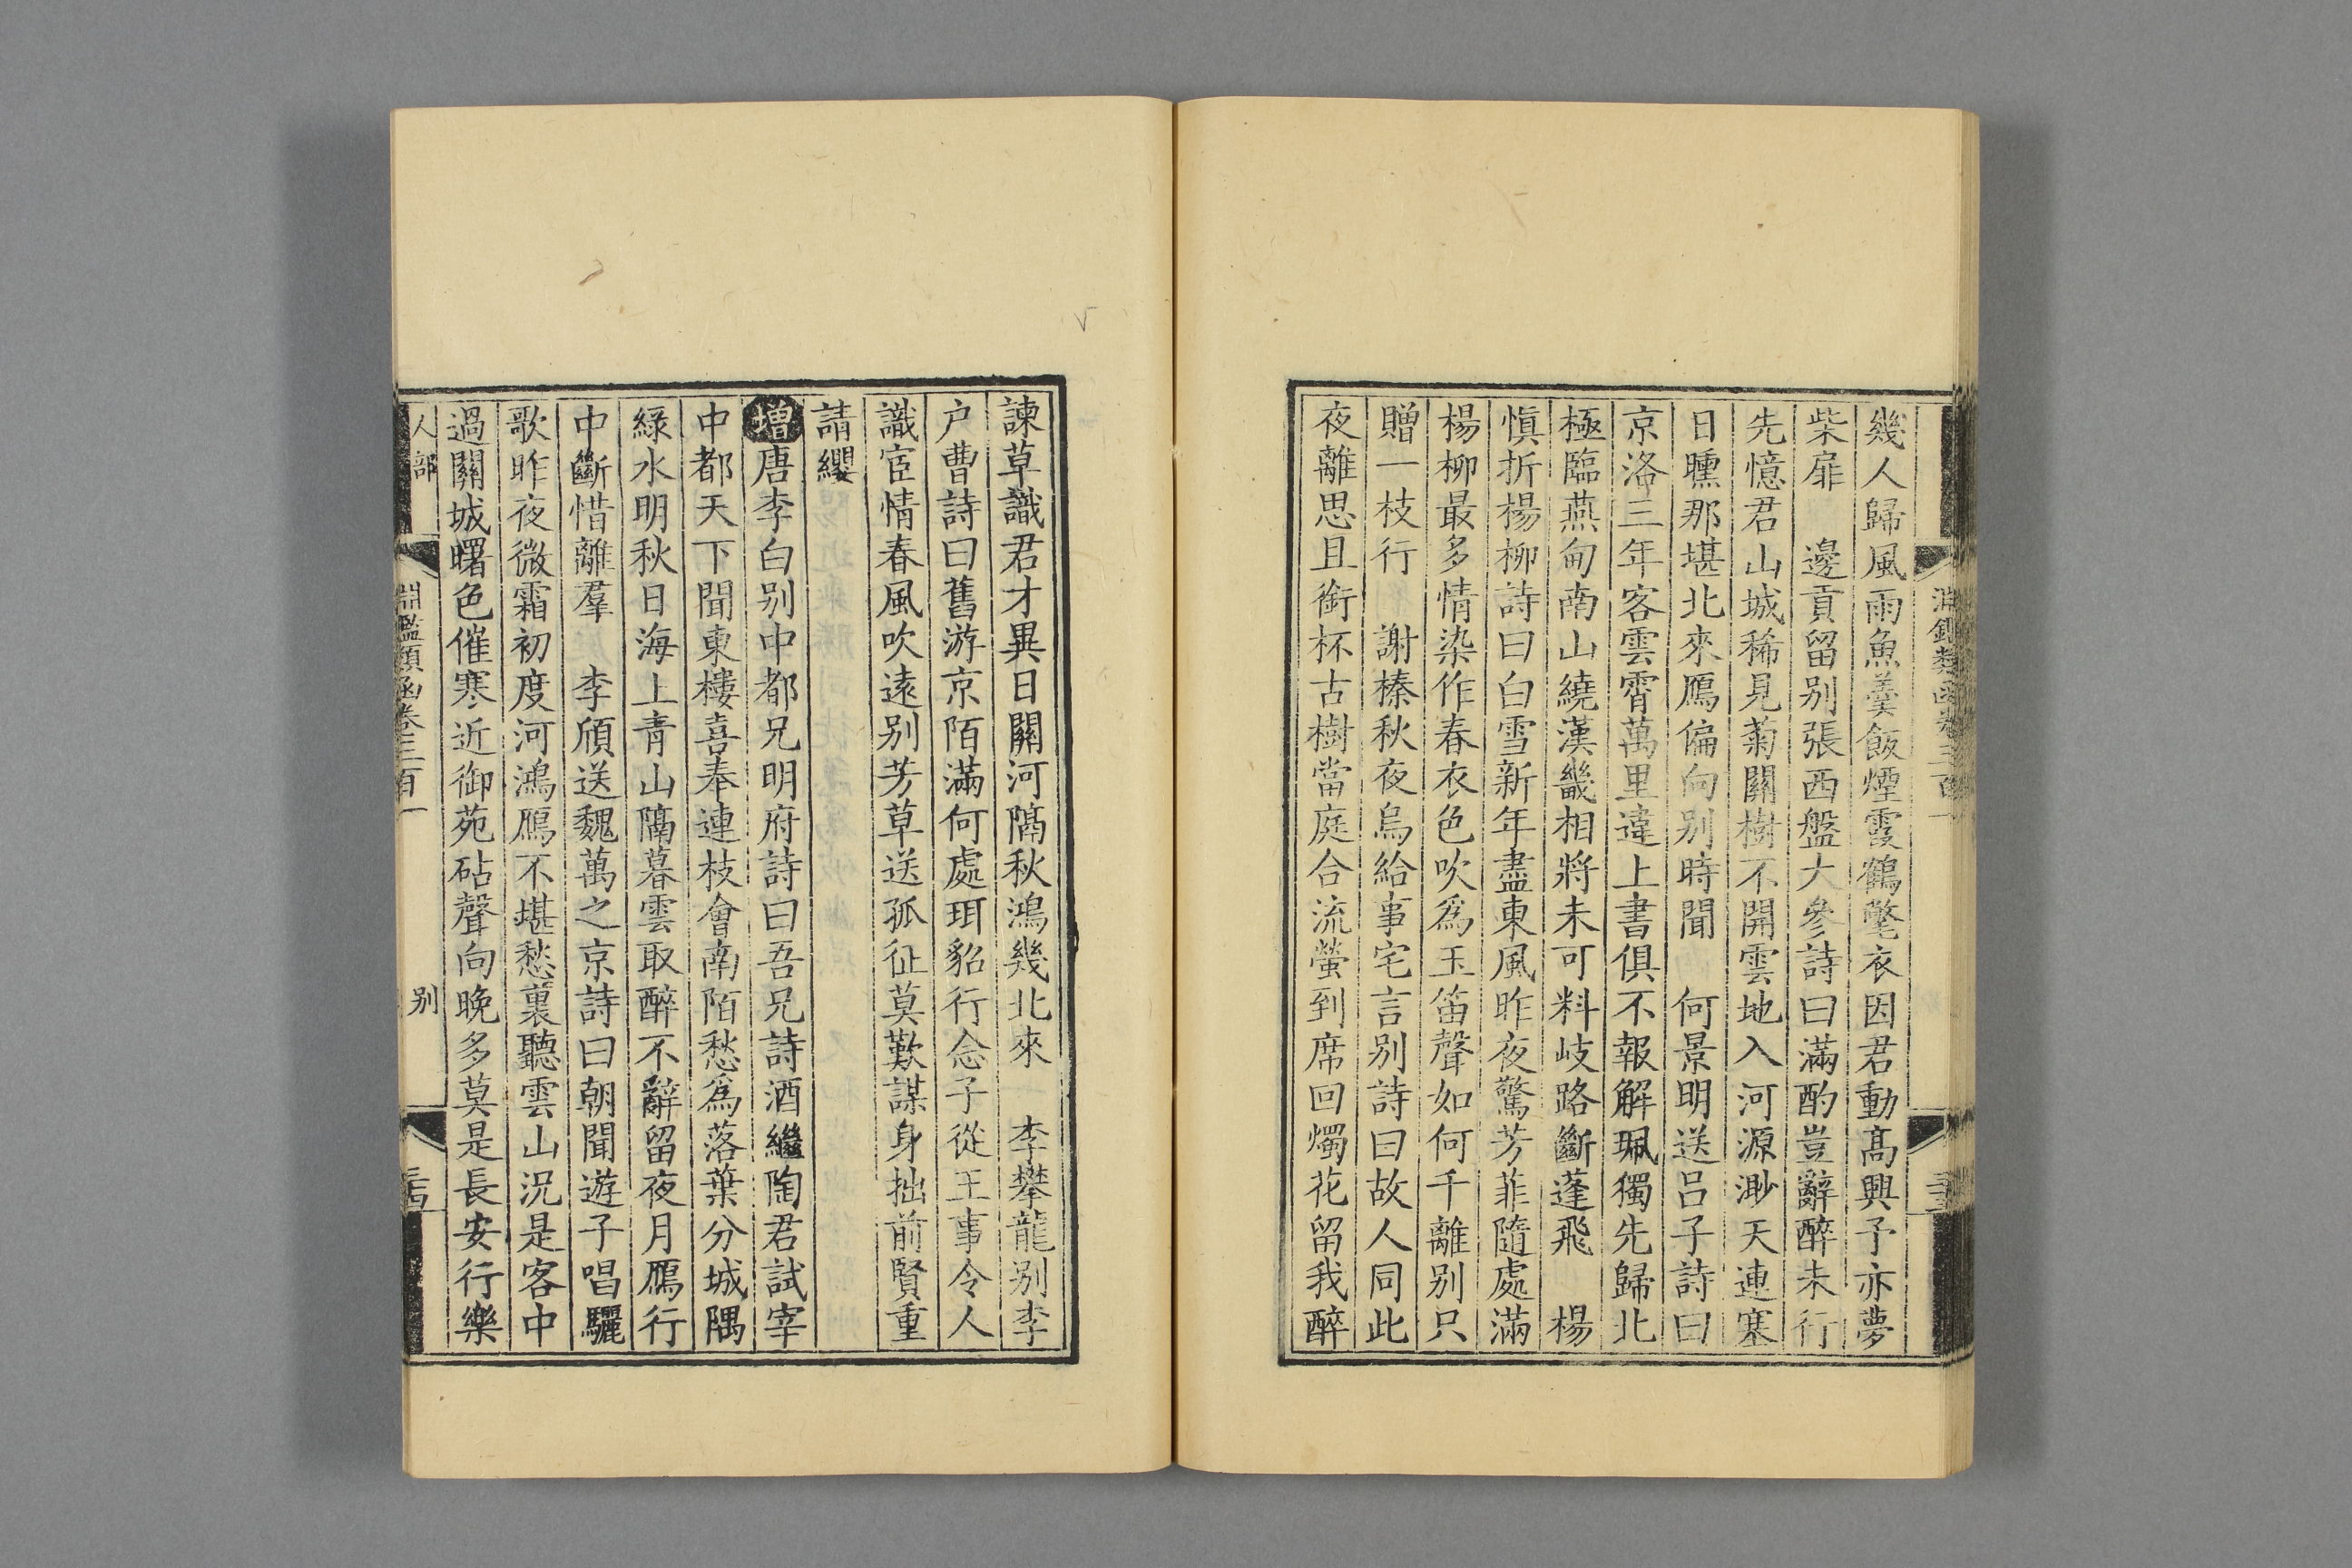 幾人歸風雨魚羹飯煙霞鶴氅衣因君動高興予亦夢
柴扉　邊貢留别張西盤大參詩曰滿酌豈辭醉未行
先憶君山城稀見菊關樹不開雲地入河源渺天連塞
日曛那堪北來鴈偏向别時聞　何景明送呂子詩曰
京洛三年客雲霄萬里違上書俱不報解珮獨先歸北
極臨燕甸南山繞漢畿相將未可料岐路斷蓬飛　楊
慎折楊柳詩曰白雪新年盡東風昨夜驚芳菲隨處滿
楊柳最多情染作春衣色吹爲玉笛聲如何千離别只
贈一枝行　謝榛秋夜烏給事宅言别詩曰故人同此
夜離思且銜杯古樹當庭合流螢到席回燭花留我醉
諫草識君才異日關河隔秋鴻幾北來　李攀龍别李
户曹詩曰舊游京陌滿何處珥貂行念子從王事令人
識宦情春風吹遠别芳草送孤征莫歎謀身拙前賢重
請纓
增唐李白别中都兄明府詩曰吾兄詩酒繼陶君試宰
中都天下聞東樓喜奉連枝會南陌愁爲落葉分城隅
綠水明秋日海上青山隔暮雲取醉不辭留夜月鴈行
中斷惜離羣　李頎送魏萬之京詩曰朝聞遊子唱驪
歌昨夜微霜初度河鴻鴈不堪愁裏聽雲山況是客中
過關城曙色催寒近御苑砧聲向晚多莫是長安行樂
人部
淵鑑類函卷三百一
别